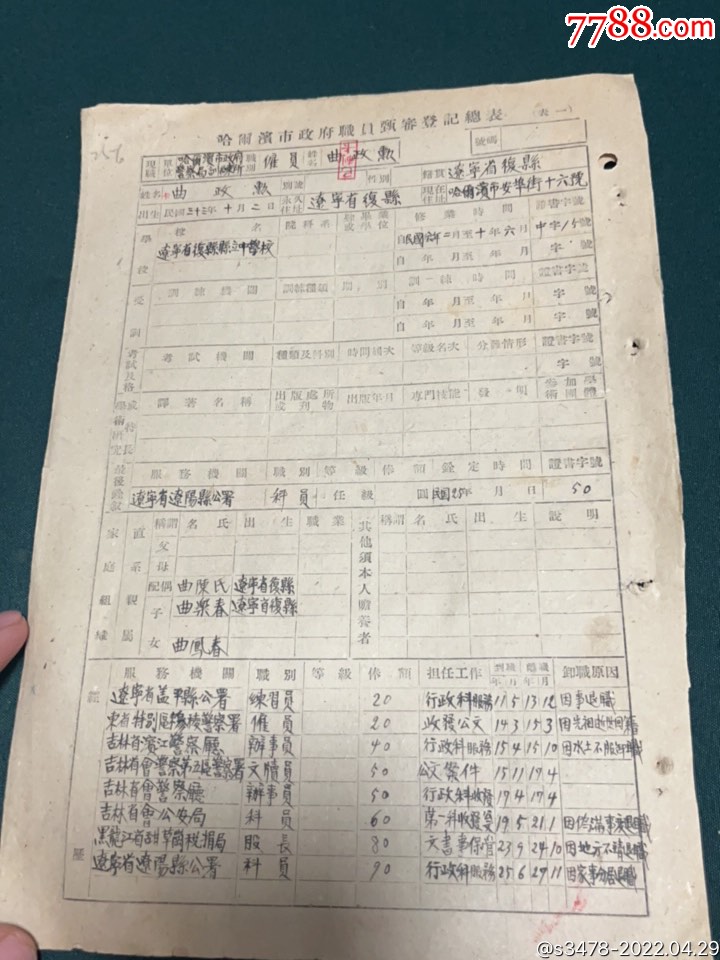 7788.com
哈爾濱市政府職員甄審登記總表 (表一)
號碼
現職 單位 哈爾濱市政府 警察局 職別 雇員 姓名 曲政勲 籍貫 遼寧省復縣
姓名 曲政勲 別號 永久住址 遼寧省復縣 科別 現在住址 哈爾濱市安埠街十六號
出生 民國 年十月二日
學校 校名 院科系 修業時間 證書字號
遼寧省復縣縣立中學校 自民國六年二月至十年六月 中字15號
自 年 月至 年 月 字 號
受訓 訓練機關 訓練種類 期別 訓練時間 證書字號
自 年 月至 年 月 字 號
自 年 月至 年 月 字 號
考試及格 考試機關 種類及科別 時間屆次 等級名次 分發情形 證書字號
字 號
學術研究或特長 譯著名稱 出版處所或刊物 出版年月 專門技能 發明 參加學術團體
最後銓敘 服務機關 職別 等級 俸額 銓定時間 證書字號
遼寧省遼陽縣公署 科員 任 級 圓 民國25年 月 日 50
家庭組織 直系親屬 稱謂 名氏 出生 職業 其他須本人贍養者 稱謂 名氏 出生 說明
父
母
配偶 曲陳氏 遼寧省復縣
子 曲榮春 遼寧省復縣
女 曲鳳春
服務機關 職別 等級 俸額 担任工作 到職 年 月 離職 年 月 卸職原因
遼寧省盖平縣公署 練習員 20 行政科服務 11 5 13 12 因事退職
東省特別區 警察署 雇員 20 收發公文 14 3 15 3
吉林省濱江警察廳 辦事員 40 行政科服務 15 4 15 10 因水土不服
吉林省會警察第五區警察署 文牘員 50 公文案件 15 11 17 4
吉林省會警察廳 辦事員 50 行政科收發 17 4 17 4
吉林省會公安局 科員 60 第一科收發 19 5 21 1
黑龍江省 稅捐局 股長 80 文書事保管 23 9 24 10 因地方不靖退職
遼寧省遼陽縣公署 科員 90 行政科服務 25 6 27 11 因家事
歷
@s3478-2022.04.29